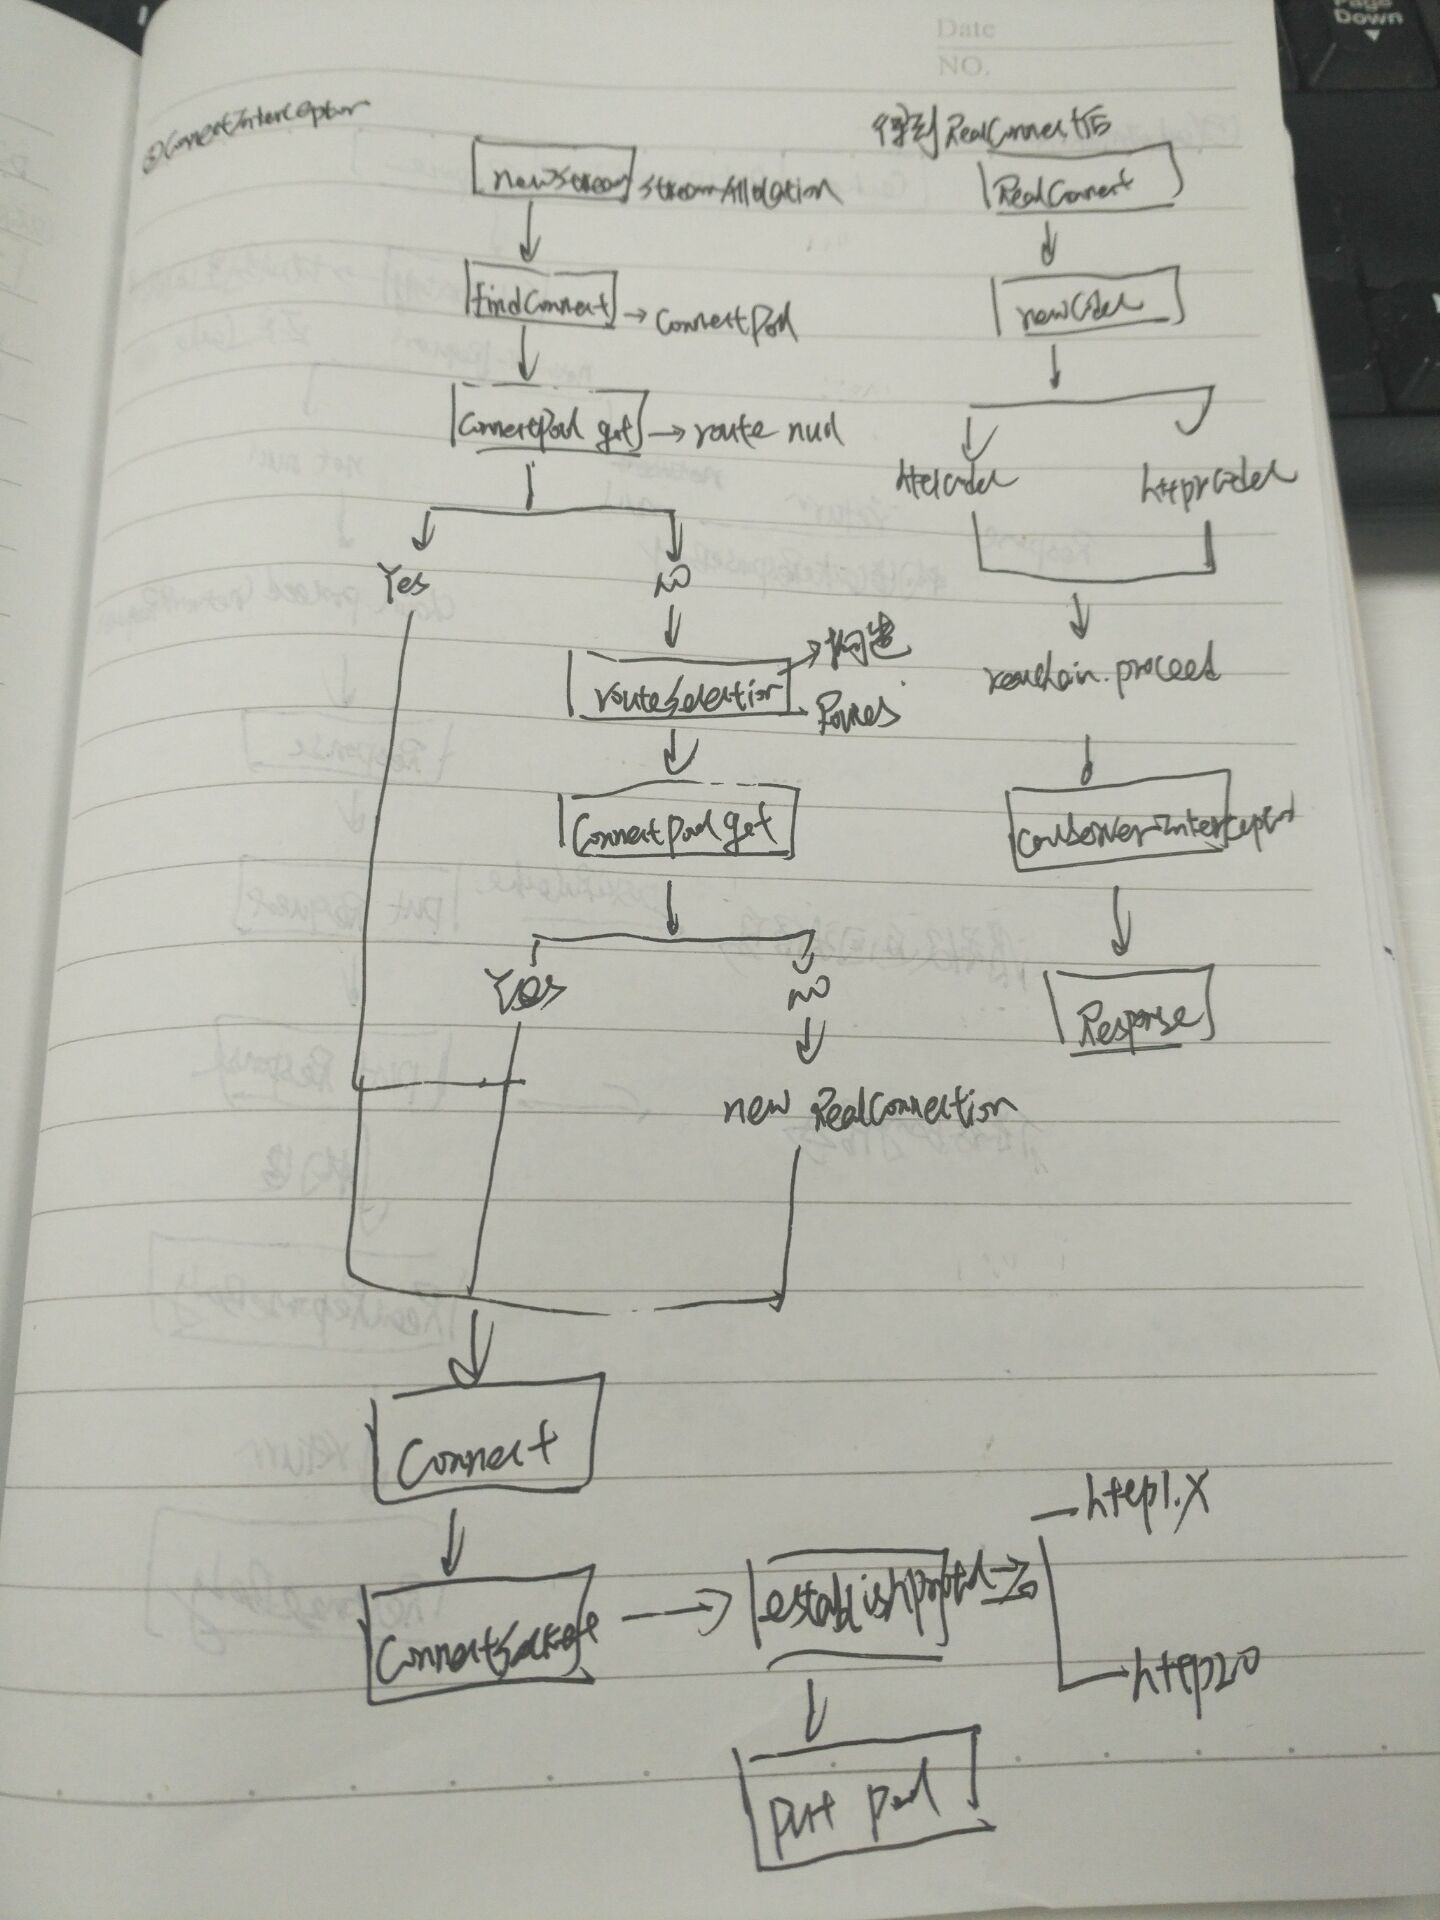 Date
NO.
Page
Down
ConnectInterceptor
newStream StreamAllocation
findConnect → ConnectPool
ConnectPool get → route null
Yes
NO
routeSelection
构造
Routes
ConnectPool get
Yes
NO
new RealConnection
Connect
ConnectSocket
establishProtocol
http1.X
http2.0
put pool
得到RealConnect后
RealConnect
newCodec
realchain.proceed
Response